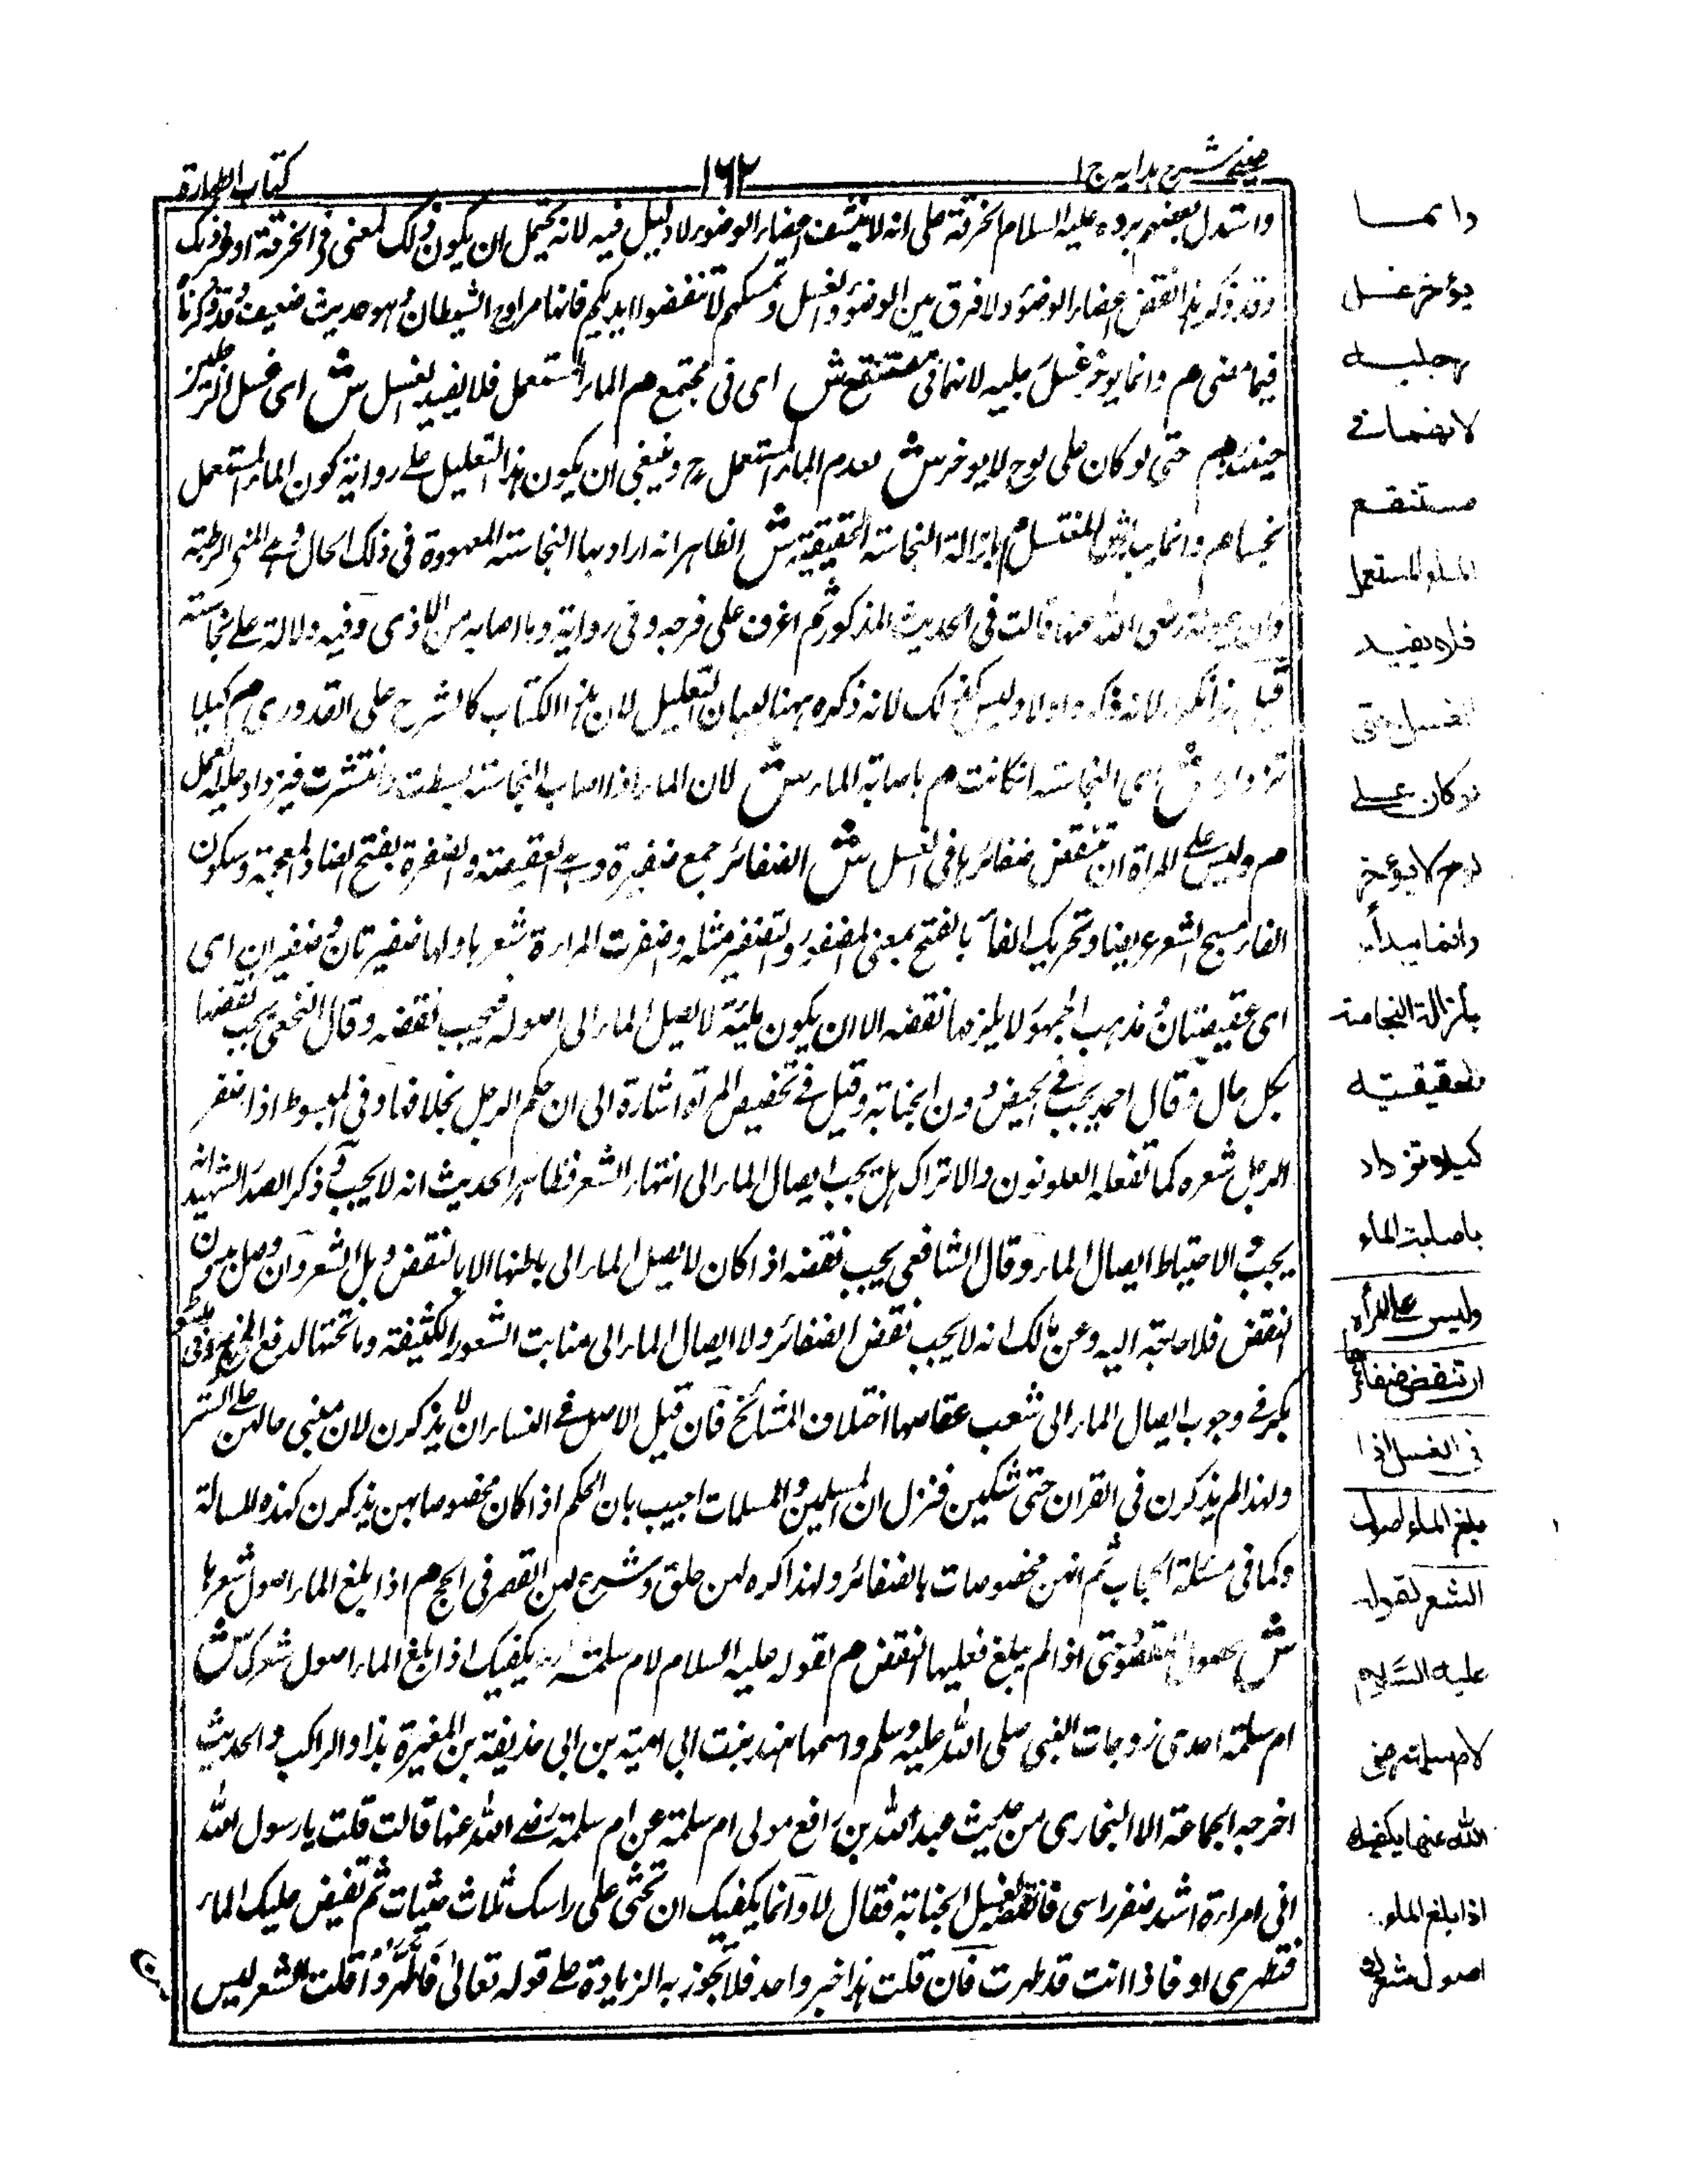 عيني شرح هدايه ج ١
١٦٢
كتاب الطهارة
واستدل بعضهم برده عليه السلام الخرقة على انه لا ينشف اعضاء الوضوء ولا دليل فيه لانه يحتمل ان يكون ذلك لمعنى في الخرقة او غير ذلك
وقد ذكر هذا نفض اعضاء الوضوء ولا فرق بين الوضوء والغسل وتمسكهم لا تنفضوا ايديكم فانها مراوح الشيطان وهو حديث ضعيف وقد ذكرناه
فيما مضى م وانما يوخر غسل رجليه لانهما في مستنقع ش اى في مجتمع م الماء المستعمل فلا يفيد الغسل ش اى غسل الرجلين
حينئذ م حتى لو كان على لوح لا يوخر ش لعدم الماء المستعمل ح وينبغي ان يكون هذا التعليل على رواية كون الماء المستعمل
نجسا م وانما يبدأ ش المغتسل م بازالة النجاسة الحقيقية ش الظاهر انه اراد بها النجاسة المعهودة في ذلك الحال وهى المنى الرطبة
رضي الله عنها قالت في الحديث المذكور ثم اغرف على فرجه وفي رواية وما اصابه من الاذى وفيه دلالة على نجاسته
قيل هذا لانه ذكره اولا وليس كذلك لانه ذكره ههنا لبيان التعليل لان هذا الكتاب كالشرح على القدوري م كيلا
تزداد ش اى النجاسة ان كانت م باصابة الماء ش لان الماء اذا اصاب النجاسة بسطت وانتشرت فيزداد عليه العمل
م وليس على المرأة ان تنقض ضفائرها في الغسل ش الضفائر جمع ضفيرة وهى العقيصة والضفرة بفتح الضاد المعجمة وسكون
الفاء نسج الشعر عريضا وتحريك الفاء بالفتح بمعنى المضفور والتضفير مثله وضفرت المراة شعرها ولها ضفيرتان وضفيران اى
اى عقيصتان ومذهب الجمهور لا يلزمها نقضه الا ان يكون ملبدة لا يصل الماء الى اصوله فيجب نقضه وقال النخعي يجب نقضها
بكل حال وقال احمد يجب في الحيض دون الجنابة وقيل في تخصيص المرأة اشارة الى ان حكم الرجل بخلافها وفي المبسوط اذا ضفر
الرجل شعره كما تفعله العلويون والاتراك هل يجب ايصال الماء الى انتهاء الشعر فظاهر الحديث انه لا يجب وذكر الصدر الشهيد انه
يجب والاحتياط ايصال الماء وقال الشافعي يجب نقضه اذا كان لا يصل الماء الى باطنها الا بالنقض وبل الشعر وان وصل بدون
النقض فلا حاجة اليه وعن مالك انه لا يجب نقض الضفائر ولا ايصال الماء الى منابت الشعور الكثيفة وما تحتها لدفع الحرج وفي مبسوط
بكر في وجوب ايصال الماء الى شعب عقاصها اختلاف المشائخ فان قيل الاصل في النساء ان لا يذكرن لان مبنى حالهن على الستر
ولهذا لم يذكرن في القران حتى شكين فنزل ان المسلمين والمسلمات اجيب بان الحكم اذا كان مخصوصا بهن يذكرن كهذه المسالة
وكما في مسئلة الحجاب ثم انهن مخصوصات بالضفائر ولهذا كره لهن حلق وشرع لهن القصر في الحج م اذا بلغ الماء اصول شعرها
ش لحصول المقصود حتى اذا لم يبلغ فعليها النقض م لقوله عليه السلام لام سلمة رض يكفيك اذا بلغ الماء اصول شعرك ش
ام سلمة احدى زوجات النبي صلى الله عليه وسلم واسمها هند بنت ابي امية بن ابي حذيفة بن المغيرة هذا زاد الراكب والحديث
اخرجه الجماعة الا البخاري من حديث عبد الله بن رافع مولى ام سلمة عن ام سلمة رضي الله عنها قالت قلت يا رسول الله
انى امراة اشد ضفر راسى فانقضه لغسل الجنابة فقال لا وانما يكفيك ان تحثى على راسك ثلاث حثيات ثم تفيض عليك الماء
فتطهرى او فاذا انت قد طهرت فان قلت هذا خبر واحد فلا تجوز به الزيادة على قوله تعالى فَاطَّهَّرُوْا قلت الشعر ليس
وانما
يؤخر غسل
رجليه
لانهما في
مستنقع
الماء المستعمل
فلا يفيد
الغسل حتى
لو كان على
لوح لا يؤخر
وانما يبدأ
بازالة النجاسة
الحقيقية
كيلا تزداد
باصابة الماء
وليس على المرأة
ان تنقض ضفائرها
في الغسل اذا
بلغ الماء اصول
الشعر لقوله
عليه السلام
لام سلمة رضي
الله عنها يكفيك
اذا بلغ الماء
اصول شعرك